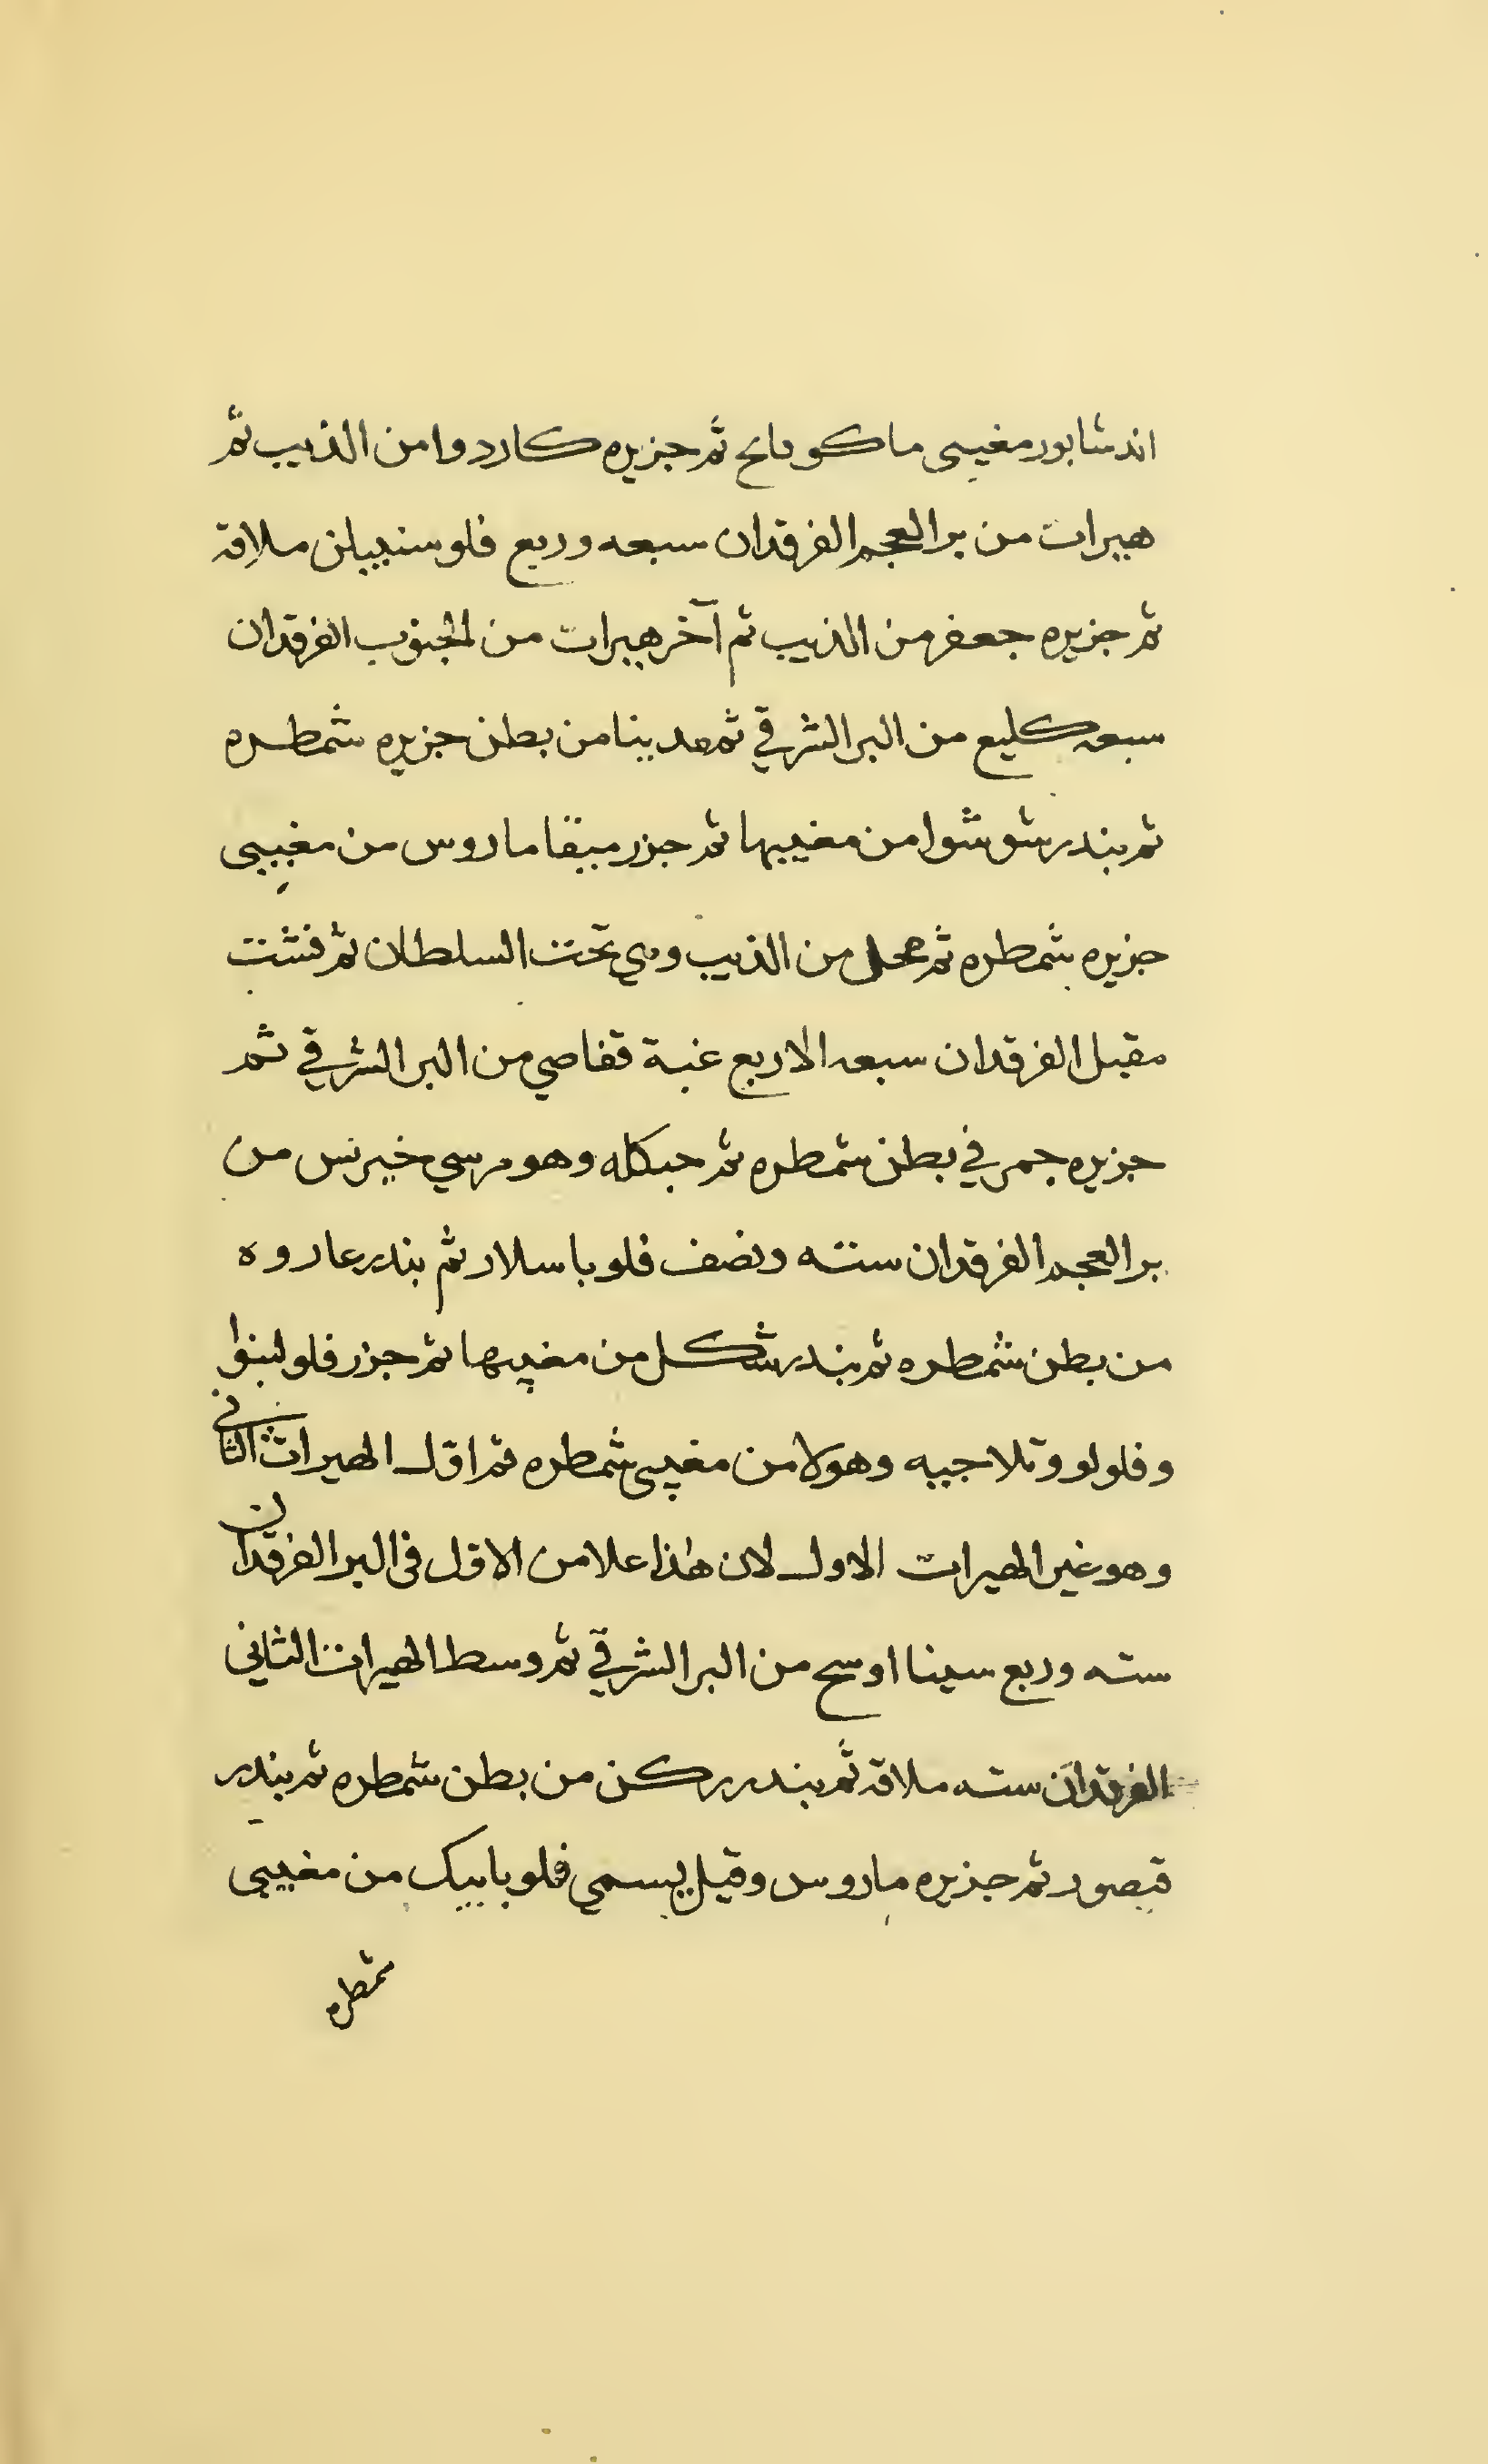 اندشابور مغيبي ماكوفانج ثم جزيره كاردوا من الذيب ثم
هيرات من بر العجم الفرقدان سبعه وربع فلو سنبيلن ملاقة
ثم جزيره جعفر من الذيب ثم آخر هيرات من الجنوب الفرقدان
سبعه كليع من البر الشرقي ثم مدينا من بطن جزيره شمطره
ثم بندر شوشوا من مغيبها ثم جزر ميقاماروس من مغيبي
جزيره شمطره ثم محل من الذيب وهي تحت السلطان ثم فنشت
مقبل الفرقدان سبعه الاربع غبة قفاصي من البر الشرقي ثم
جزيره جمر في بطن شمطره ثم جبكله وهو مرسي خيرنس من
بر العجم الفرقدان سته ونصف فلو باسلار ثم بندر عاروه
من بطن شمطره ثم بندر شكل من مغيبها ثم جزر فلو لنبوا
وفلولو وتلاجيه وهولا من مغيبي شمطره ثم اول الهيرات الثاني
وهو غير الهيرات الاول لان هذا علا من الاول في البر الفرقدان
سته وربع سينا اوسح من البر الشرقي ثم وسط الهيرات الثاني
الفرقدان سته ملاقه ثم بندر ركن من بطن شمطره ثم بندر
قيصور ثم جزيره ماروس وقيل يسمي فلو بابيك من مغيبي
شمطره